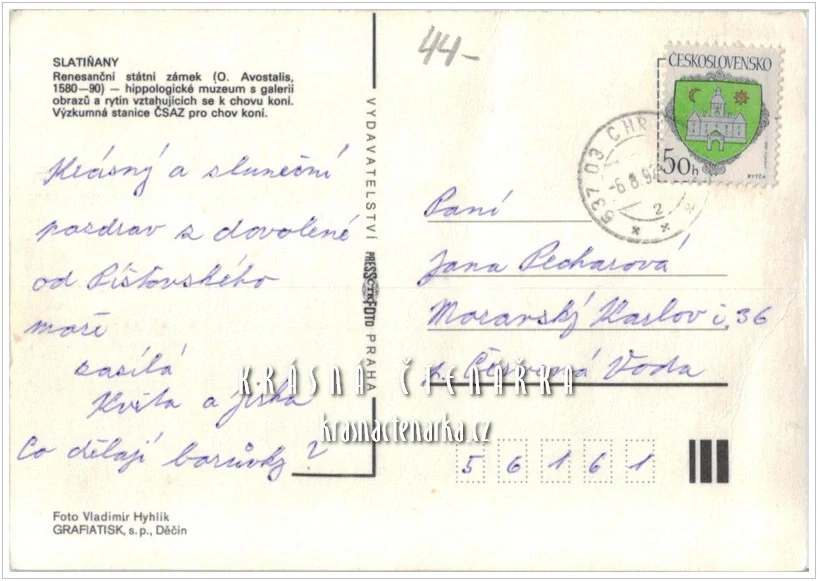 44-
SLATIŇANY
Renesanční státní zámek (O. Avostalis,
1580—90) — hippologické muzeum s galerii
obrazů a rytin vztahujících se k chovu koní.
Výzkumná stanice ČSAZ pro chov koní.
Krásný a sluneční
pozdrav z dovolené
od Píšťovského
moře
zasílá
Květa a Jirka
Co dělají borůvky?
Foto Vladimír Hyhlík
GRAFIATISK, s.p., Děčín
VYDAVATELSTVÍ PRESSFOTO PRAHA
ČESKOSLOVENSKO
50h
BYTČA
537 03 CHR
-6.8.92
2
Paní
Jana Pecharová
Moravský Karlov č. 36
p. Červená Voda
56161
KRÁSNÁ ČTENÁŘKA
krasnactenarka.cz